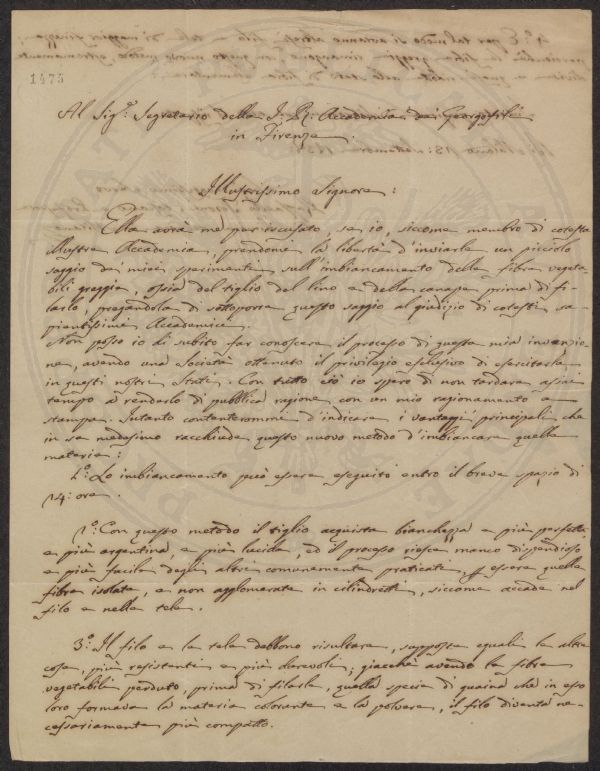 1475
Al Sig.r Segretario della I: R: Accademia dei Georgofili
in Firenze.
Illustrissimo Signore:
Ella avrà me per iscusato, se io, siccome membro di cotesta
illustre Accademia, prendomi la libertà d'inviarle un piccolo
saggio de' miei sperimenti sull'imbiancamento della fibra vegeta-
bile greggia, ossia del tiglio del lino e della canape prima di fi-
larlo, pregandola di sottoporre questo saggio al giudizio di cotesti sa-
pientissimi Accademici.
Non posso io di subito far conoscere il processo di questa mia invenzio-
ne, avendo una Società ottenuto il privilegio esclusivo di esercitarla
in questi nostri Stati. Con tutto ciò io spero di non tardare assai
tempo a renderlo di pubblica ragione con un mio ragionamento a
stampa. Intanto contenterommi d'indicare i vantaggi principali che
in se medesimo racchiude questo nuovo metodo d'imbiancare quella
materia:
1.o Lo imbiancamento può essere eseguito entro il breve spazio di
24: ore.
2.o Con questo metodo il tiglio acquista bianchezza e più perfetta,
e più argentina, e più lucida, ed il processo riesce manco dispendioso
e più facile degli altri comunemente praticati, p essere quella
fibra isolata, e non agglomerata in cilindretti, siccome accade nel
filo e nella tela.
3.o Il filo e la tela debbono risultare, supposte eguali le altre
cose, più resistenti e più durevoli; giacchè avendo la fibra
vegetabile perduto, prima di filarla, quella specie di guaina che in esse
loro formava la materia colorante e la polvere, il filo diventa ne-
cessariamente più compatto.